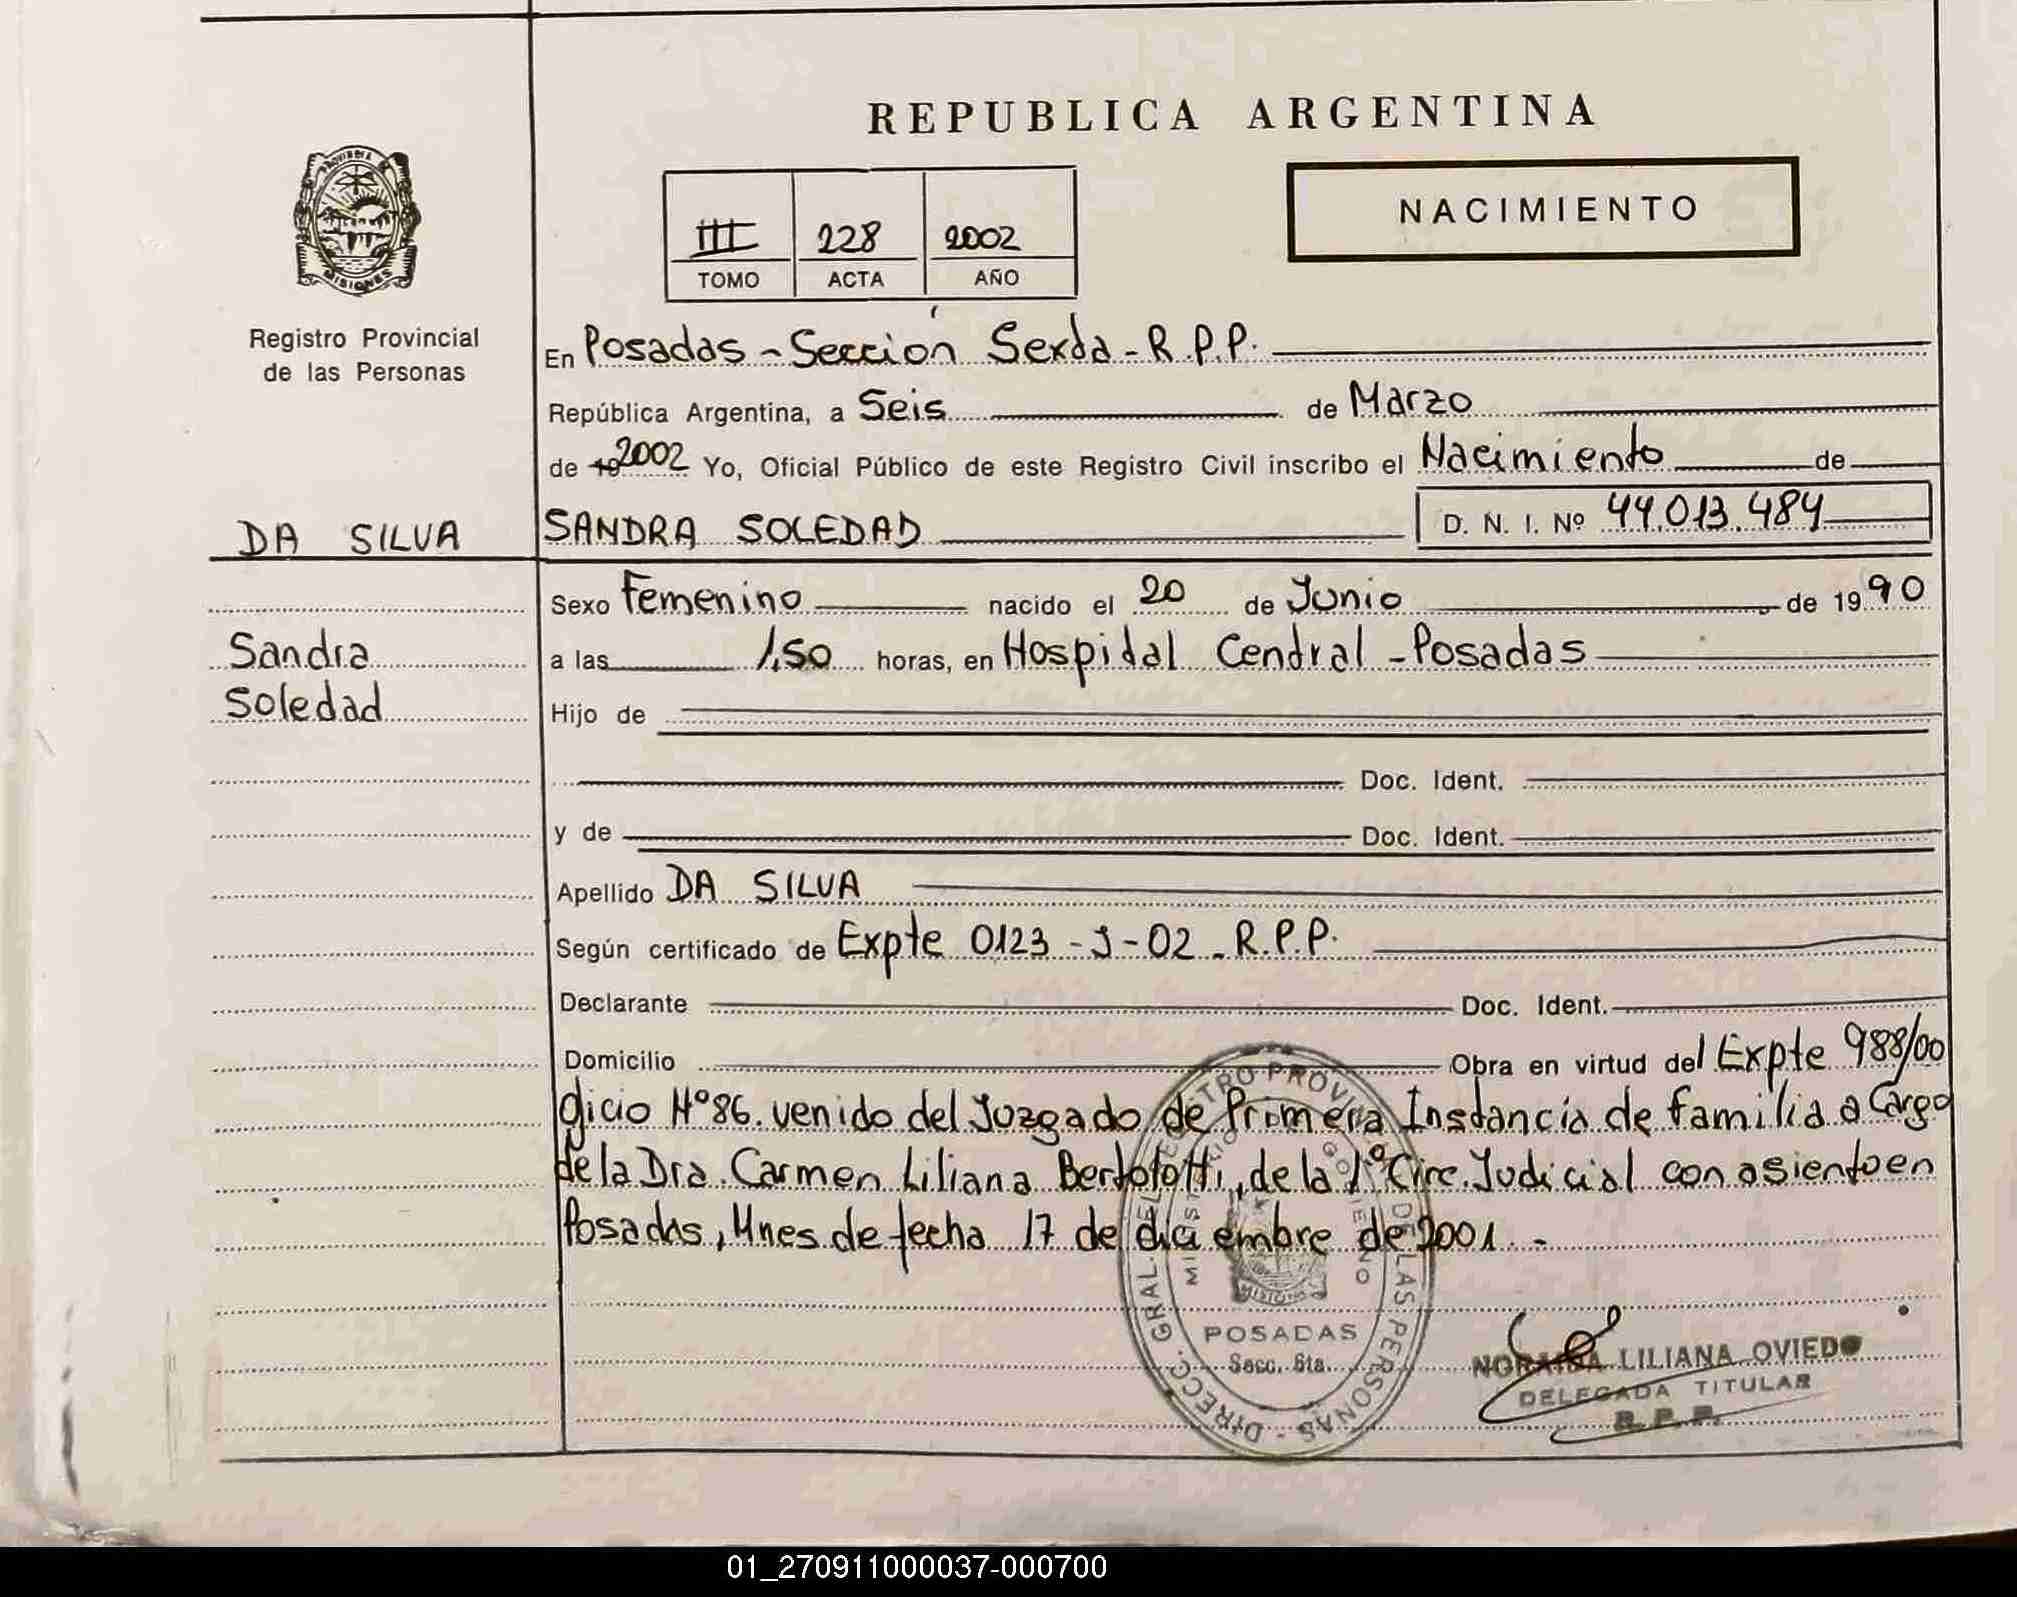 REPUBLICA ARGENTINA
NACIMIENTO
PROVINCIA DE
MISIONES
Registro Provincial
de las Personas
III 228 2002
TOMO ACTA AÑO
En Posadas - Sección Sexta - R.P.P.
República Argentina, a Seis de Marzo
de 19 2002 Yo, Oficial Público de este Registro Civil inscribo el Nacimiento de
DA SILVA SANDRA SOLEDAD D. N. I. Nº 44.013.484
Sexo Femenino nacido el 20 de Junio de 1990
Sandra
Soledad
a las 1,50 horas, en Hospital Central - Posadas
Hijo de
Doc. Ident.
y de Doc. Ident.
Apellido DA SILVA
Según certificado de Expte 0123 - J - 02 - R.P.P.
Declarante Doc. Ident.
Domicilio Obra en virtud del Expte 988/00
Oficio Nº 86. venido del Juzgado de Primera Instancia de familia a Cargo
de la Dra. Carmen Liliana Bertolotti, de la 1º Circ. Judicial con asiento en
Posadas, Mnes de fecha 17 de diciembre de 2001. -
DIRECC. GRAL. DEL REGISTRO PROVINCIAL DE LAS PERSONAS -
POSADAS
Secc. 6ta.
LILIANA OVIEDO
DELEGADA TITULAR
R. P. P.
01_270911000037-000700